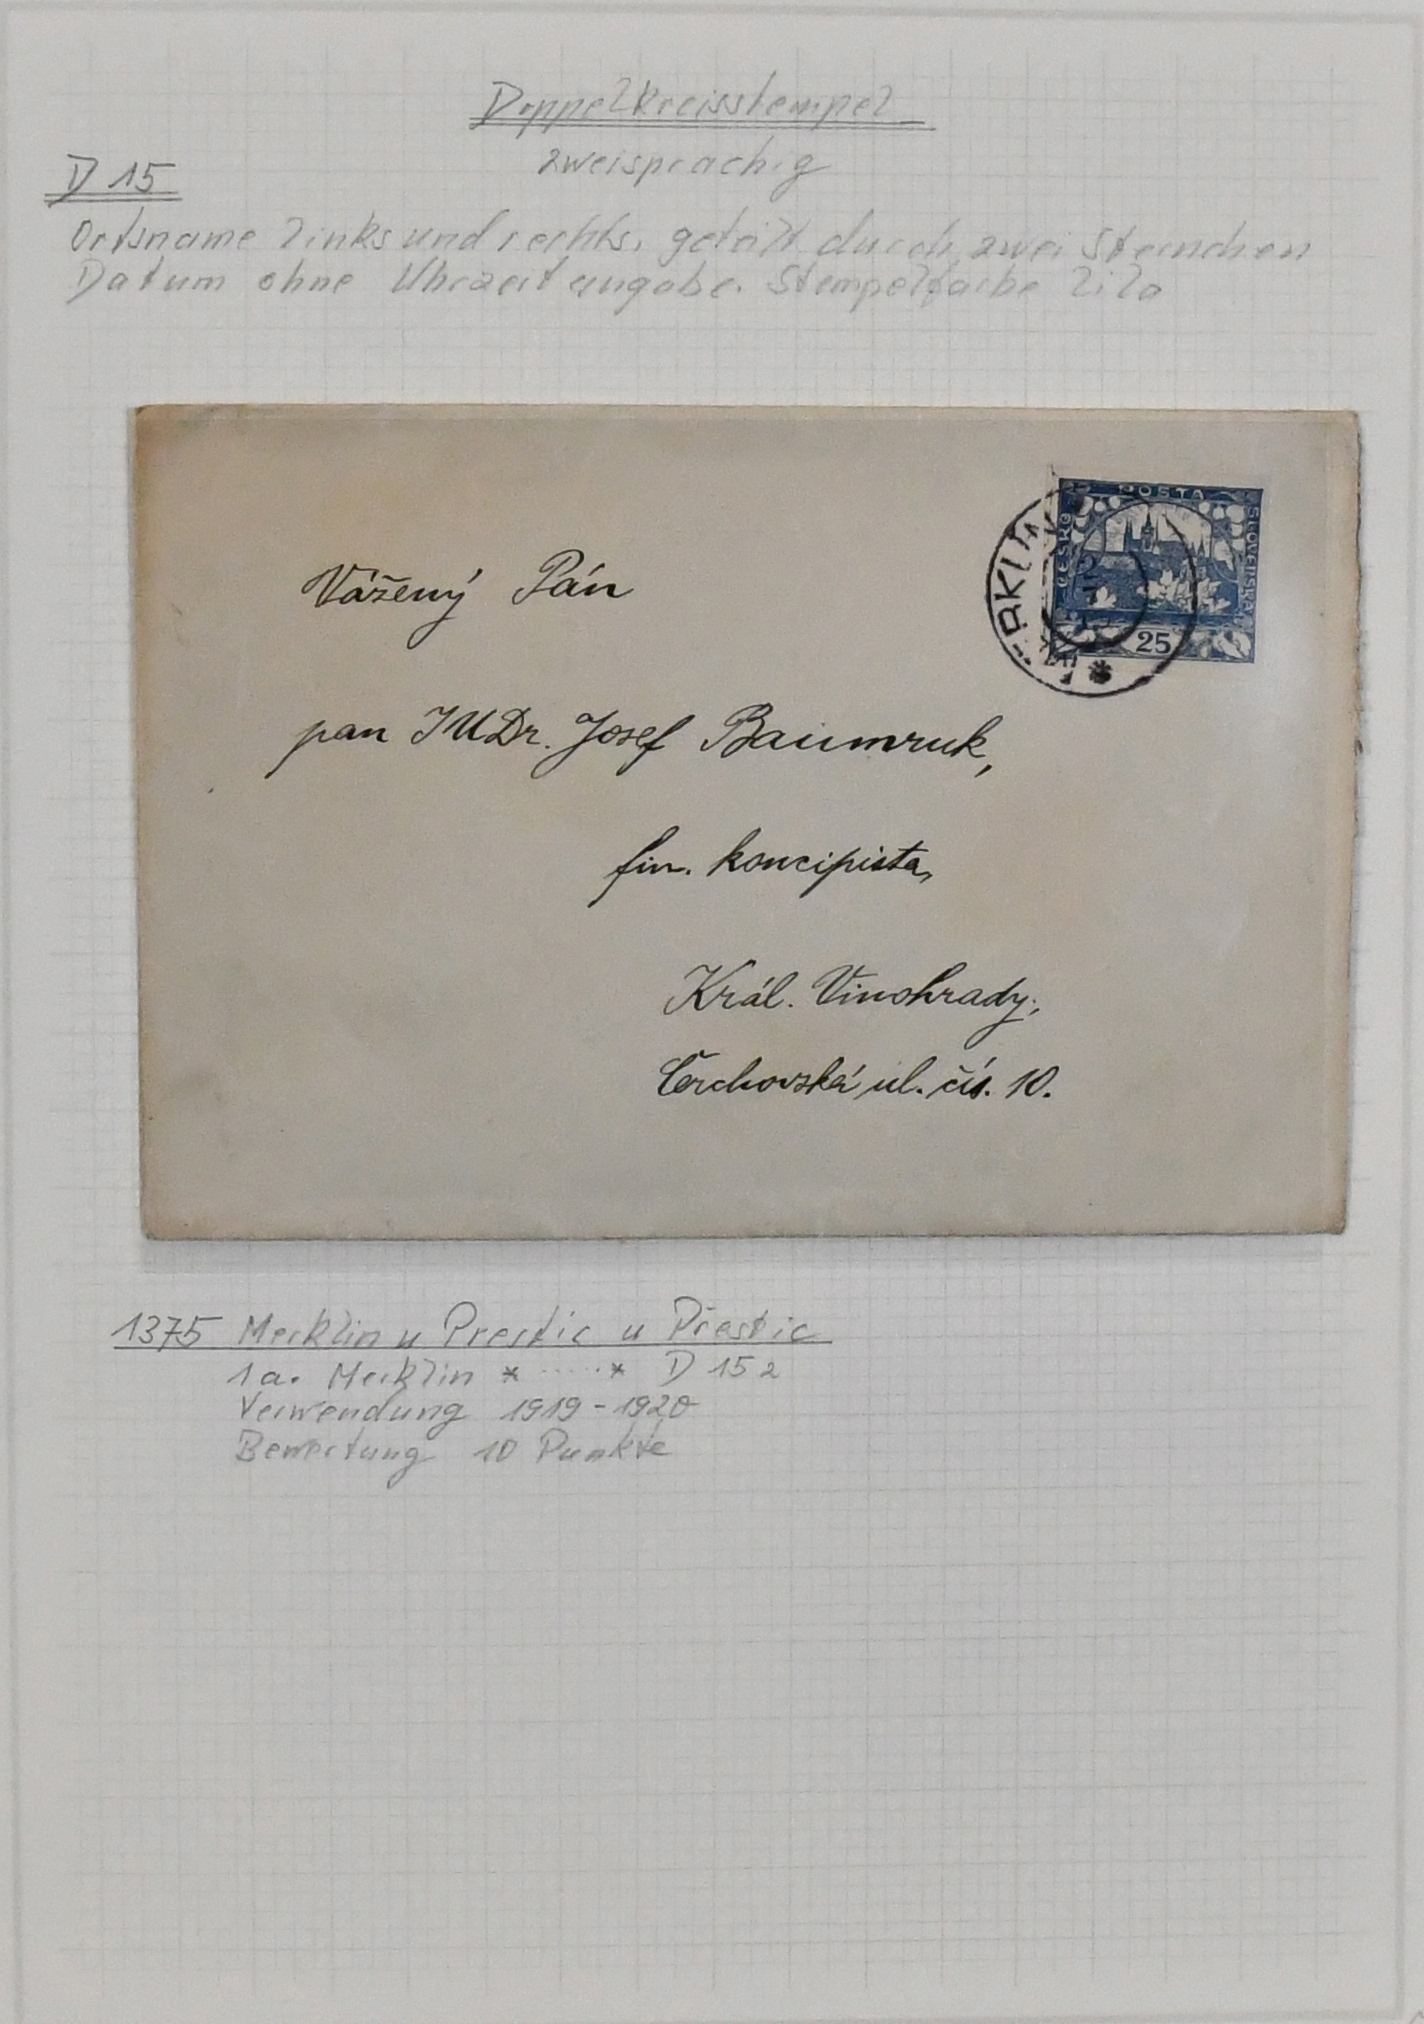 Doppelkreisstempel
zweisprachig
D 15
Ortsname links und rechts, geteilt durch zwei Sternchen
Datum ohne Uhrzeitangabe. Stempelfarbe lila
POSTA
ČESKO
SLOVENSKÁ
25
Vážený Pán
pan JUDr. Josef Baumruk,
fin. koncipista,
Král. Vinohrady,
Čerchovská ul. čís. 10.
1375 Merklin u Prestic u Přestic
1a. Merklin * ..... * D 15 a
Verwendung 1919 - 1920
Bewertung 10 Punkte